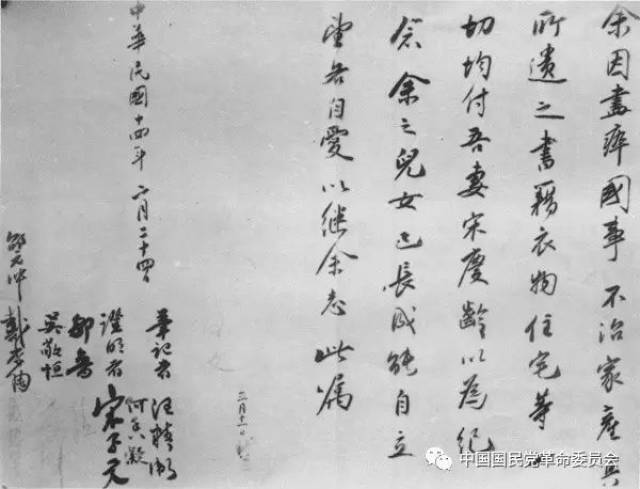 余因盡瘁國事不治家產其
所遺之書籍衣物住宅等一
切均付吾妻宋慶齡以為紀
念余之兒女已長成能自立
望各自愛以继余志此嘱
三月十一日
中華民國十四年二月二十四日
筆記者 汪精衛
何香凝
證明者 宋子文
鄒魯
吳敬恒
邵元冲
戴季陶
中国国民党革命委员会